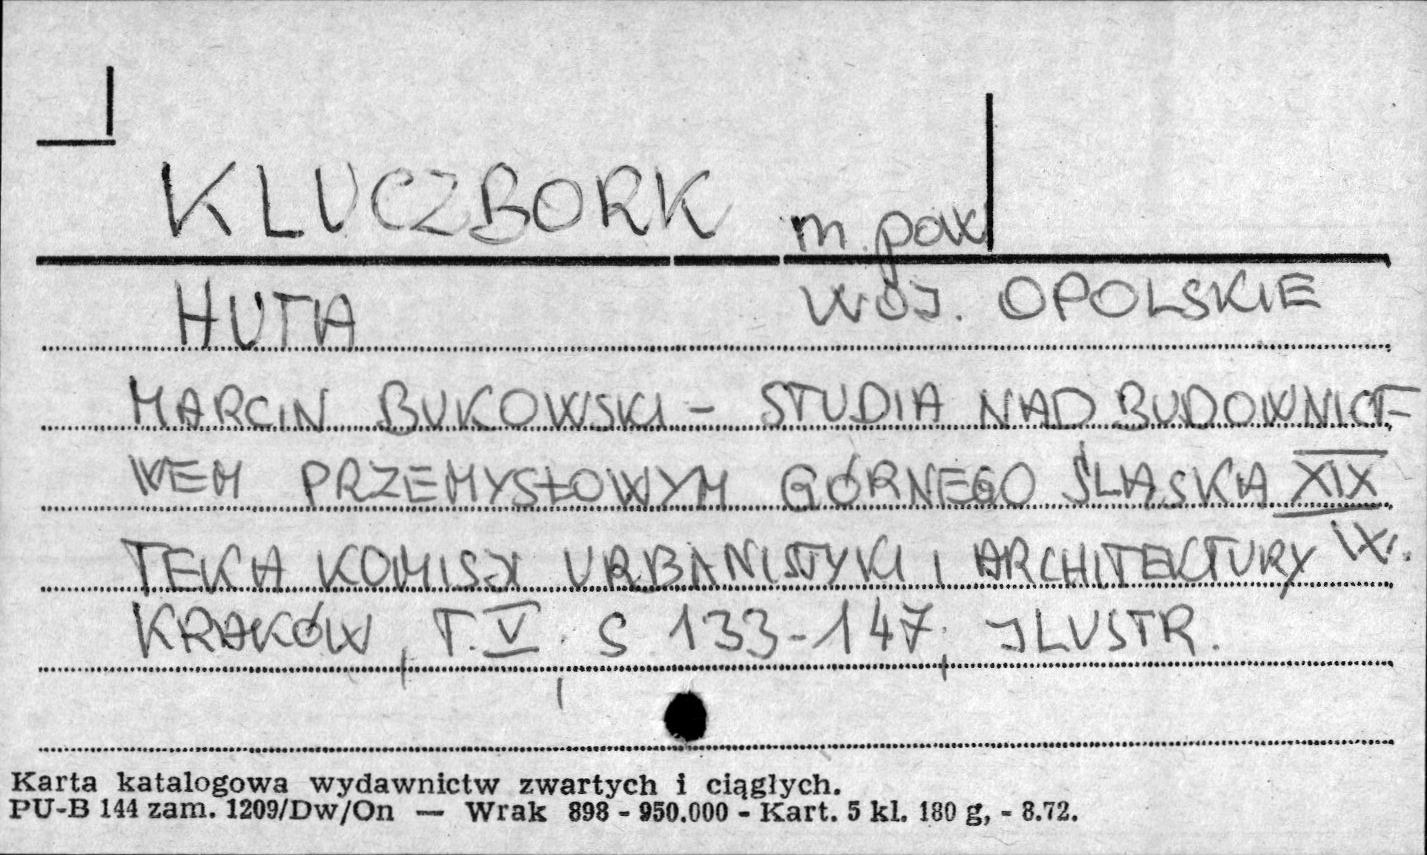 KLUCZBORK m. pow
HUTA WOJ. OPOLSKIE
MARCIN BUKOWSKI - STUDIA NAD BUDOWNICT-
WEM PRZEMYSŁOWYM GÓRNEGO ŚLĄSKA XIX
W.
TEKA KOMISJI URBANISTYKI I ARCHITEKTURY
KRAKÓW, T. V, S 133-147, ILUSTR.
Karta katalogowa wydawnictw zwartych i ciągłych.
PU-B 144 zam. 1209/Dw/On — Wrak 898 - 950.000 - Kart. 5 kl. 180 g, - 8.72.